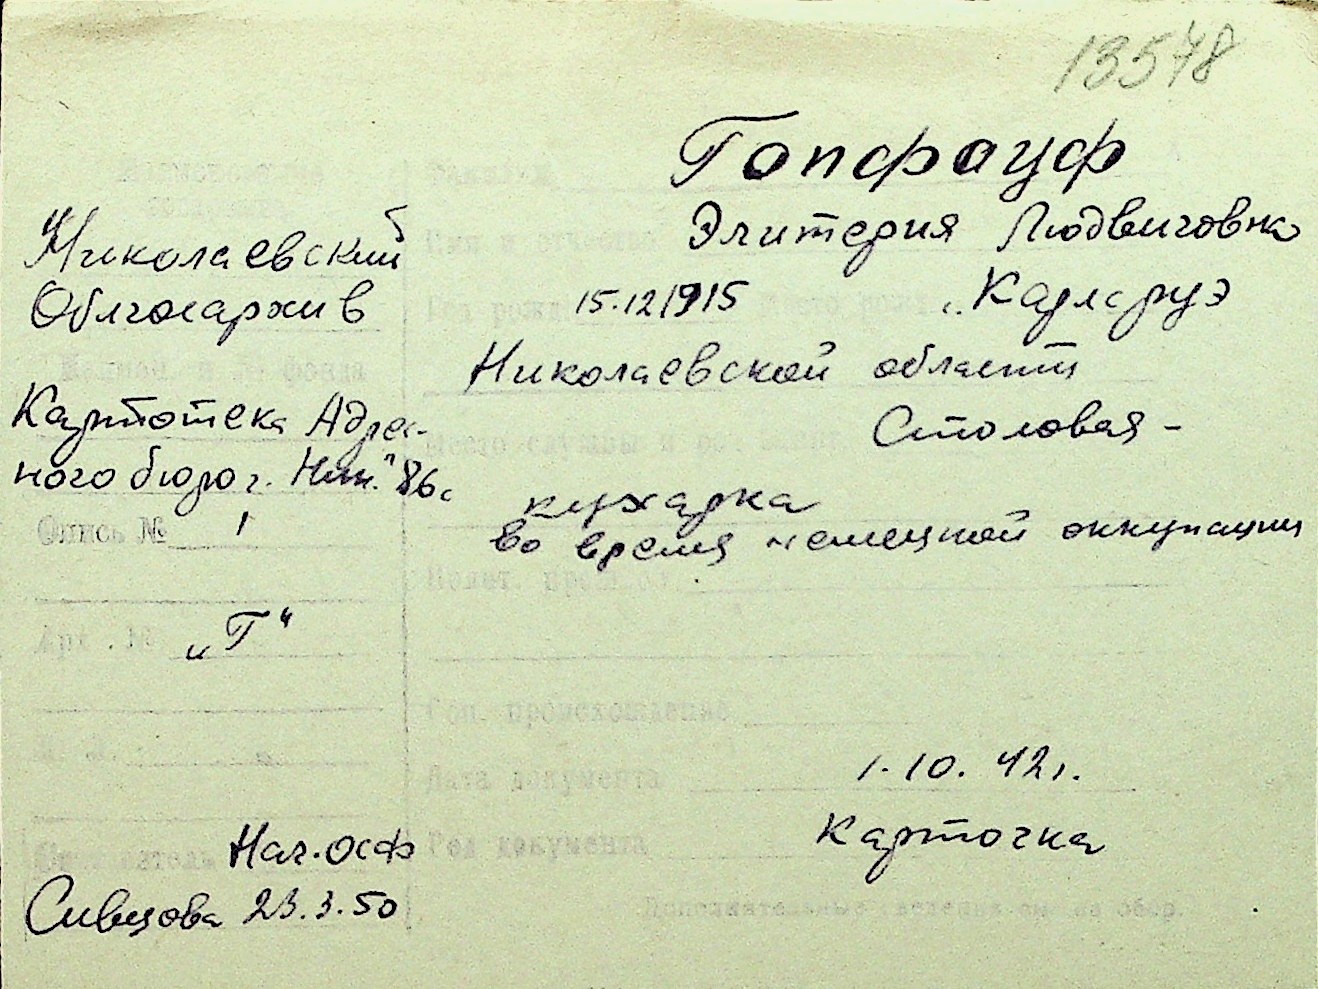 13578
Гопфауф
Наименование
Фамилия
Николаевский
Имя и отчество Элитерия Людвиговна
Облгосархив
Год рожд. 15.12.1915 Место рожд. „Карлсруэ
Николаевской области
№ фонда
Картотека Адрес-
Место службы и Столовая -
ного бюро г. Ник." 86с
кухарка
Опись № 1
во время немецкой оккупации
Арх. № „Г"
Соц. происхождение
Дата документа 1.10.42г.
Род документа Карточка
Нач. осф
Сивцова 23.3.50
Дополнительные сведения см. на обор.